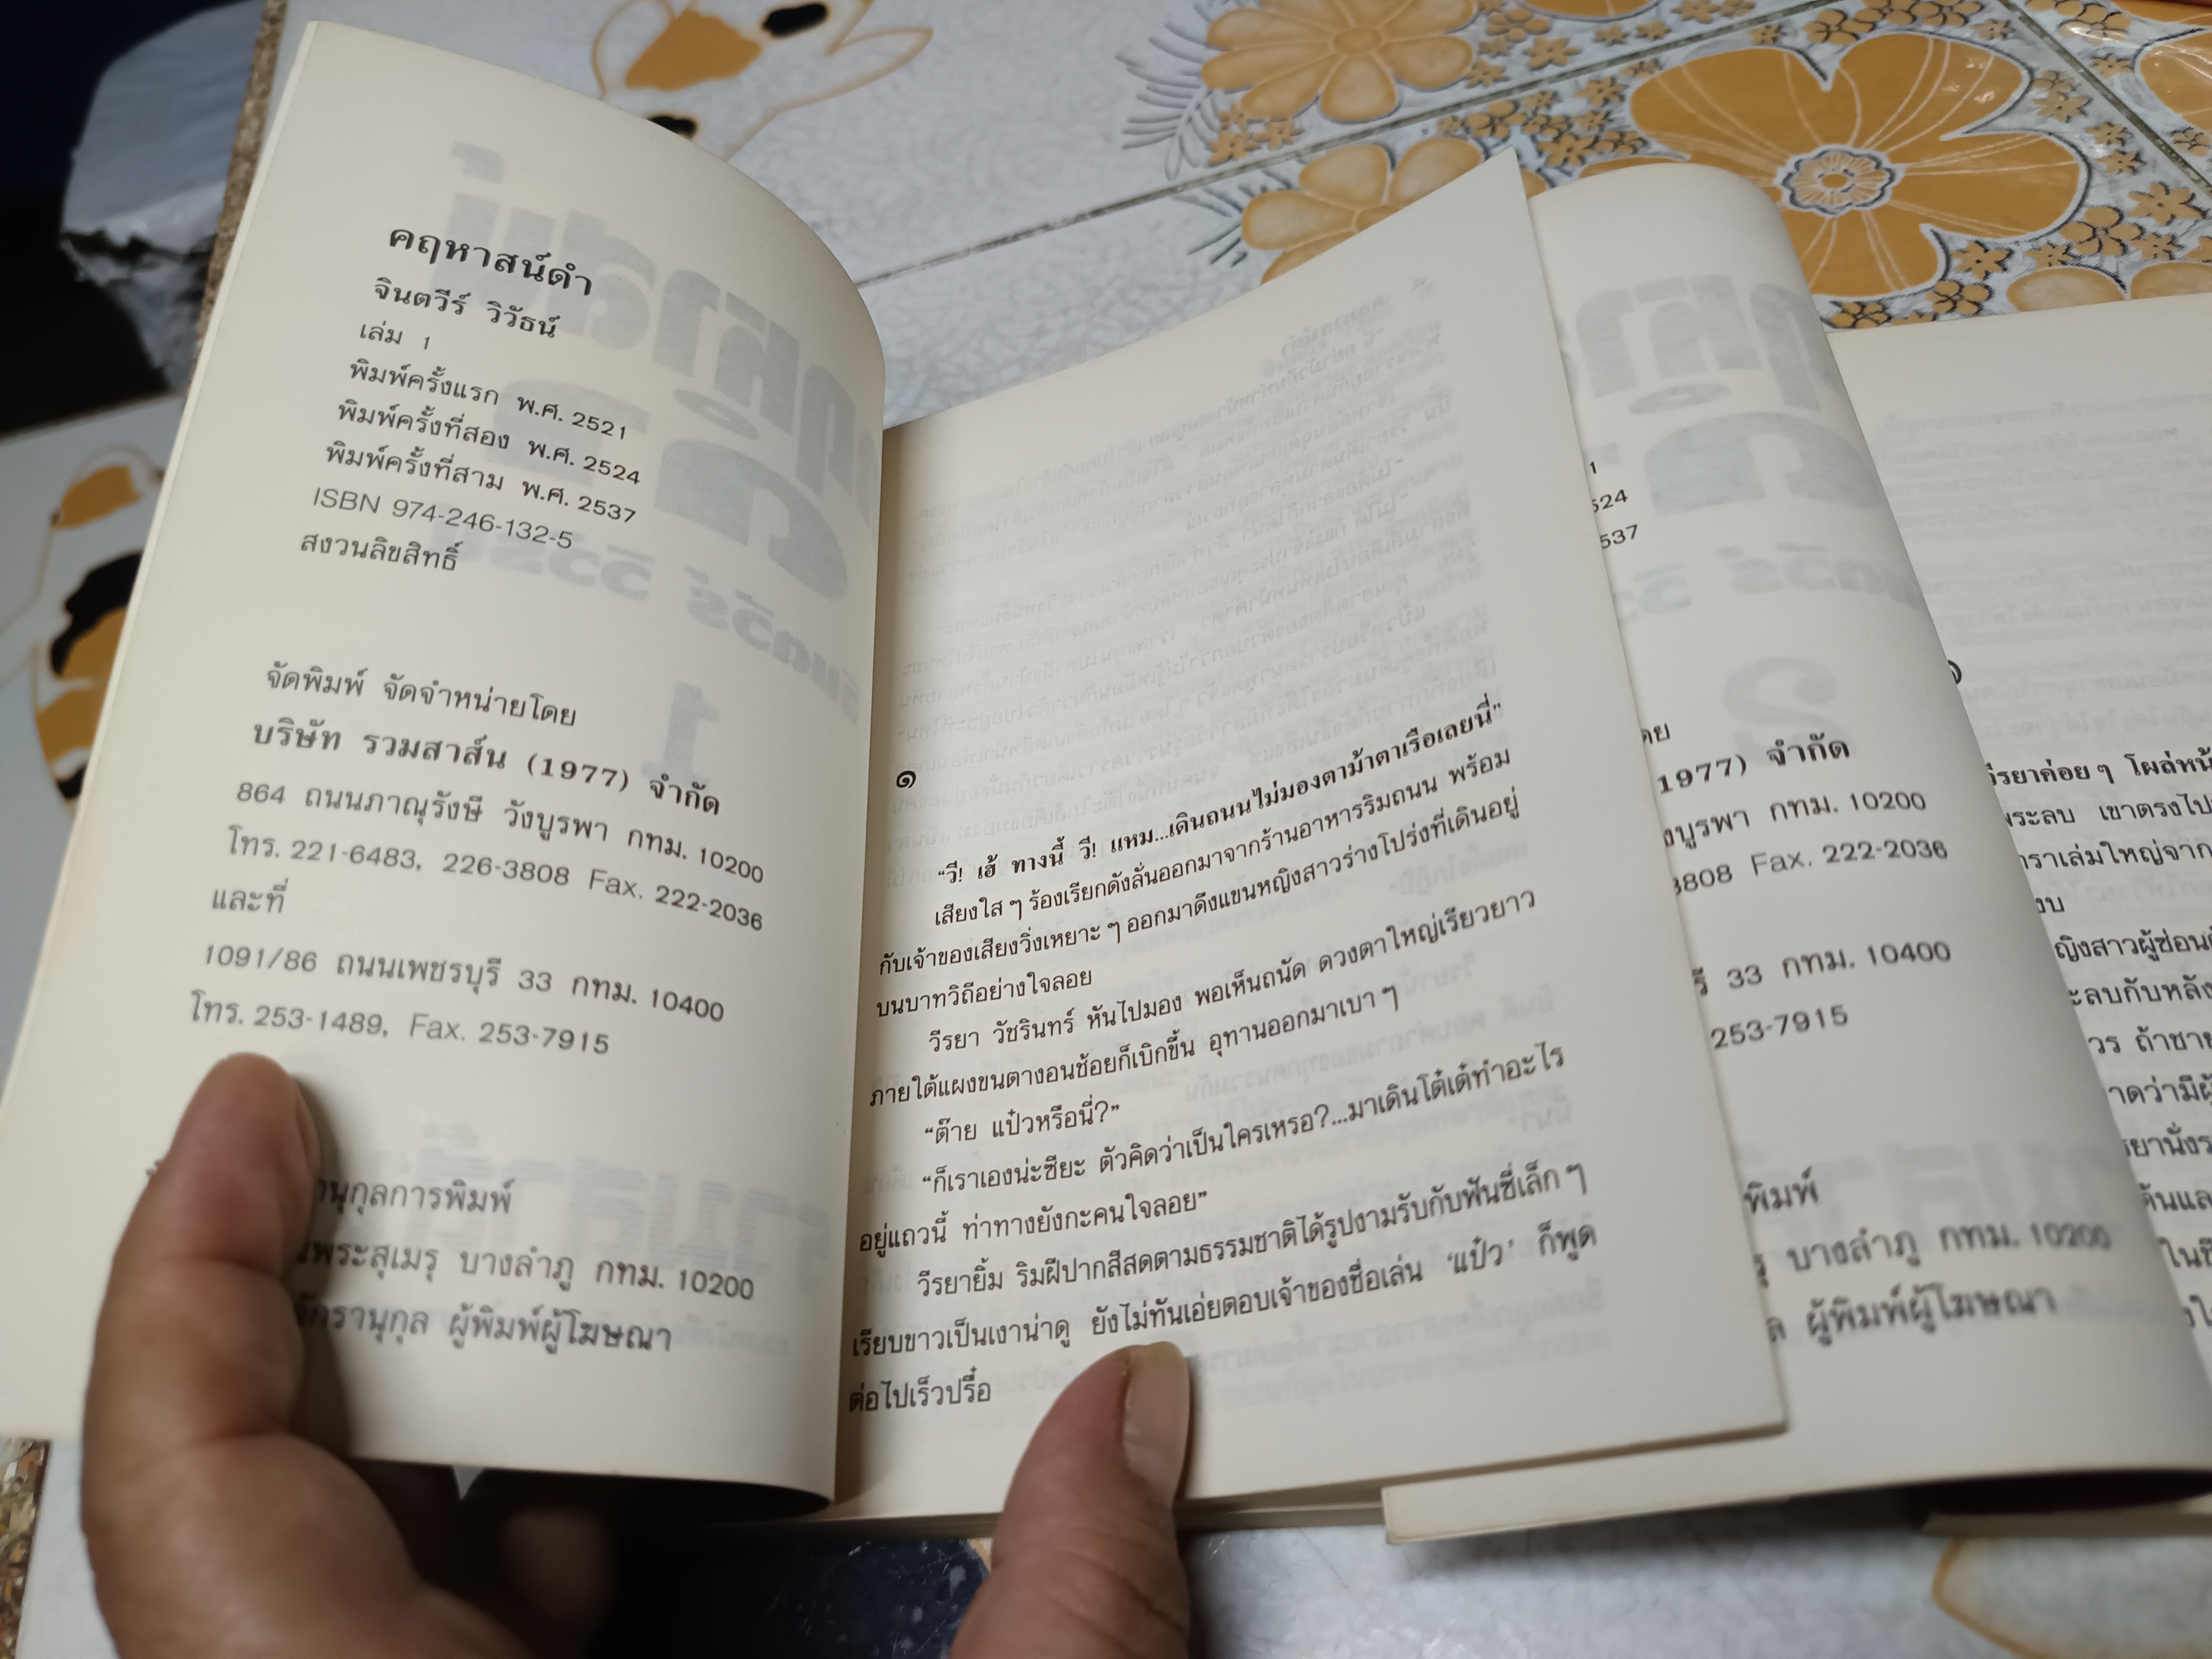 คฤหาสน์ดำ
จินตวีร์ วิวัธน์
เล่ม 1
พิมพ์ครั้งแรก พ.ศ. 2521
พิมพ์ครั้งที่สอง พ.ศ. 2524
พิมพ์ครั้งที่สาม พ.ศ. 2537
ISBN 974-246-132-5
สงวนลิขสิทธิ์
จัดพิมพ์ จัดจำหน่ายโดย
บริษัท รวมสาส์น (1977) จำกัด
864 ถนนภาณุรังษี วังบูรพา กทม. 10200
โทร. 221-6483, 226-3808 Fax. 222-2036
และที่
1091/86 ถนนเพชรบุรี 33 กทม. 10400
โทร. 253-1489, Fax. 253-7915
านุกูลการพิมพ์
พระสุเมรุ บางลำภู กทม. 10200
จักรานุกูล ผู้พิมพ์ผู้โฆษณา
๑
“วี! เฮ้ ทางนี้ วี! แหม...เดินถนนไม่มองตาม้าตาเรือเลยนี่”
เสียงใส ๆ ร้องเรียกดังลั่นออกมาจากร้านอาหารริมถนน พร้อม
กับเจ้าของเสียงวิ่งเหยาะ ๆ ออกมาดึงแขนหญิงสาวร่างโปร่งที่เดินอยู่
บนบาทวิถีอย่างใจลอย
วีรยา วัชรินทร์ หันไปมอง พอเห็นถนัด ดวงตาใหญ่เรียวยาว
ภายใต้แผงขนตางอนช้อยก็เบิกขึ้น อุทานออกมาเบา ๆ
“ต๊าย แป๋วหรือนี่?”
“ก็เราเองน่ะซียะ ตัวคิดว่าเป็นใครเหรอ?...มาเดินโต๋เต๋ทำอะไร
อยู่แถวนี้ ท่าทางยังกะคนใจลอย”
วีรยายิ้ม ริมฝีปากสีสดตามธรรมชาติได้รูปงามรับกับฟันซี่เล็ก ๆ
เรียบขาวเป็นเงาน่าดู ยังไม่ทันเอ่ยตอบเจ้าของชื่อเล่น ‘แป๋ว’ ก็พูด
ต่อไปเร็วปรื๋อ
1
524
537
ดย
1977) จำกัด
งบูรพา กทม. 10200
3808 Fax. 222-2036
รี 33 กทม. 10400
253-7915
พิมพ์
รุ บางลำภู กทม. 10200
ล ผู้พิมพ์ผู้โฆษณา
วีรยาค่อย ๆ โผล่หน้
พระลบ เขาตรงไป
ตำราเล่มใหญ่จาก
งบ
ญิงสาวผู้ซ่อน
ะลบกับหลัง
วร ถ้าชาย
าดว่ามีผู้
รยานั่งร
ต้นแล